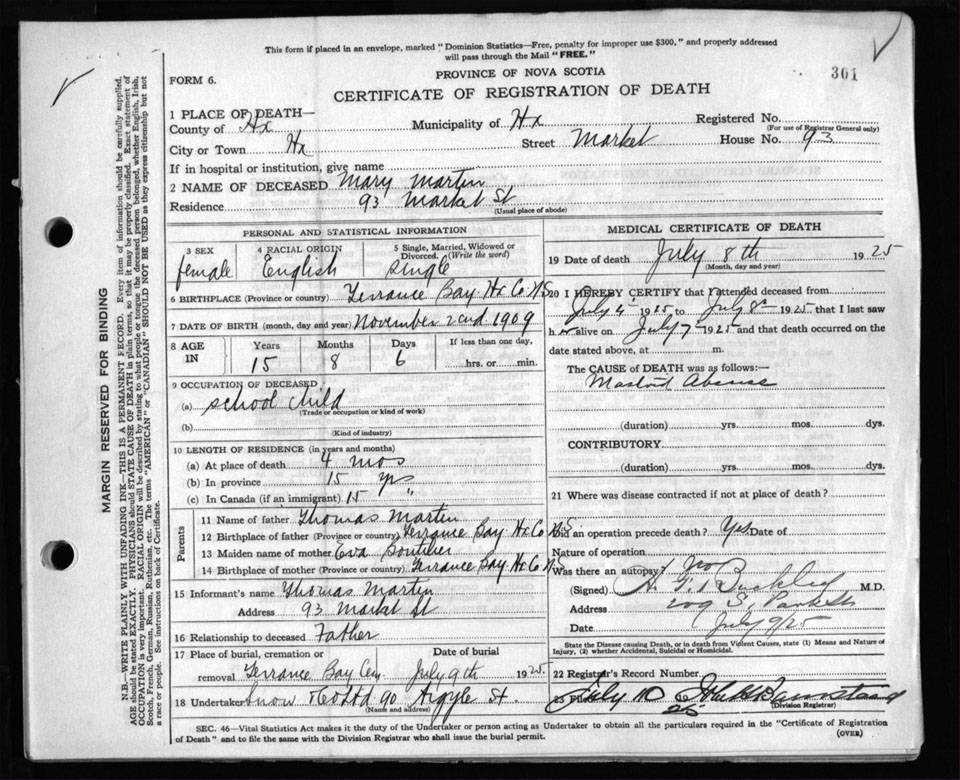 This form if placed in an envelope, marked "Dominion Statistics—Free, penalty for improper use $300," and properly addressed
will pass through the Mail "FREE."
301
FORM 6.
PROVINCE OF NOVA SCOTIA
CERTIFICATE OF REGISTRATION OF DEATH
1 PLACE OF DEATH—
County of Hx Municipality of Hx Registered No.
(For use of Registrar General only)
City or Town Hx Street Market House No. 93
If in hospital or institution, give name
2 NAME OF DECEASED Mary Martin
Residence 93 Market St
(Usual place of abode)
PERSONAL AND STATISTICAL INFORMATION
3 SEX female
4 RACIAL ORIGIN English
5 Single, Married, Widowed or Divorced. (Write the word) single
6 BIRTHPLACE (Province or country) Terrance Bay Hx Co N.S
7 DATE OF BIRTH (month, day and year) November 2nd 1909
8 AGE IN Years Months Days If less than one day,
15 8 6 hrs. or min.
9 OCCUPATION OF DECEASED
(a) school child
(Trade or occupation or kind of work)
(b)
(Kind of industry)
10 LENGTH OF RESIDENCE (in years and months)
(a) At place of death 4 mos
(b) In province 15 yrs
(c) In Canada (if an immigrant) 15 "
Parents
11 Name of father Thomas Martin
12 Birthplace of father (Province or country) Terrance Bay Hx Co N.S
13 Maiden name of mother Eva
14 Birthplace of mother (Province or country) Terrance Bay Hx Co N.S
15 Informant's name Thomas Martin
Address 93 Market St
16 Relationship to deceased Father
17 Place of burial, cremation or removal Terrance Bay Cem
Date of burial July 9th 1925
18 Undertaker Snow & Co Ltd 90 Argyle St.
(Name and address)
MEDICAL CERTIFICATE OF DEATH
19 Date of death July 8th 1925
(Month, day and year)
20 I HEREBY CERTIFY that I attended deceased from
July 4 1925 to July 8 1925 that I last saw
h er alive on July 7 1925 and that death occurred on the
date stated above, at m.
The CAUSE of DEATH was as follows:—
Mastoid
(duration) yrs. mos. dys.
CONTRIBUTORY
(duration) yrs. mos. dys.
21 Where was disease contracted if not at place of death?
Did an operation precede death? Yes Date of
Nature of operation
Was there an autopsy? No
(Signed) Buckley M.D.
Address 209 S. Park St
Date July 9/25
State the Disease causing Death, or in death from Violent Causes, state (1) Means and Nature of
Injury, (2) whether Accidental, Suicidal or Homicidal.
22 Registrar's Record Number
Filed July 10 25
(Division Registrar)
SEC. 46—Vital Statistics Act makes it the duty of the Undertaker or person acting as Undertaker to obtain all the particulars required in the "Certificate of Registration
of Death" and to file the same with the Division Registrar who shall issue the burial permit.
(OVER)
MARGIN RESERVED FOR BINDING
N.B.—WRITE PLAINLY WITH UNFADING INK—THIS IS A PERMANENT RECORD. Every item of information should be carefully supplied.
AGE should be stated EXACTLY. PHYSICIANS should STATE CAUSE OF DEATH in plain terms, so that it may be properly classified. Exact statement of
OCCUPATION is very important. RACIAL ORIGIN will be described by stating to what people or tongue the deceased person belonged, whether English, Irish,
Scotch, French, German, Russian, Ruthenian, etc. The terms "AMERICAN" or "CANADIAN" SHOULD NOT BE USED as they express citizenship but not
a race or people. See instructions on back of Certificate.